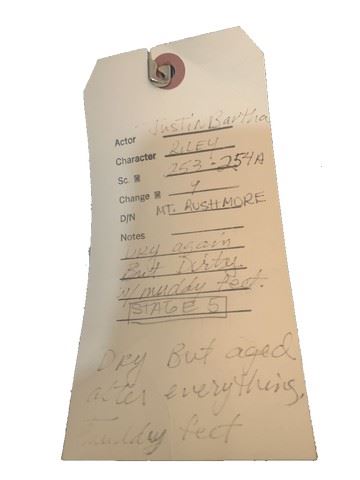 Actor Justin Bartha
Character RILEY
Sc. # 253 - 254A
Change # 9
D/N MT. RUSHMORE
Notes
Dry again
But Dirty.
w/muddy feet.
STAGE 5
Dry But aged
after everything.
muddy feet